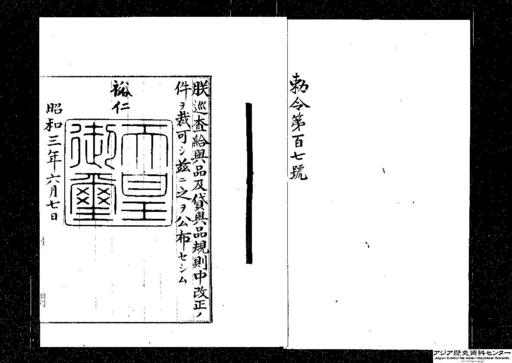 勅令第百七號
朕巡査給與品及貸與品規則中改正ノ
件ヲ裁可シ玆ニ之ヲ公布セシム
裕仁
天皇
御璽
昭和三年六月七日
アジア歴史資料センター
Japan Center for Asian Historical Records